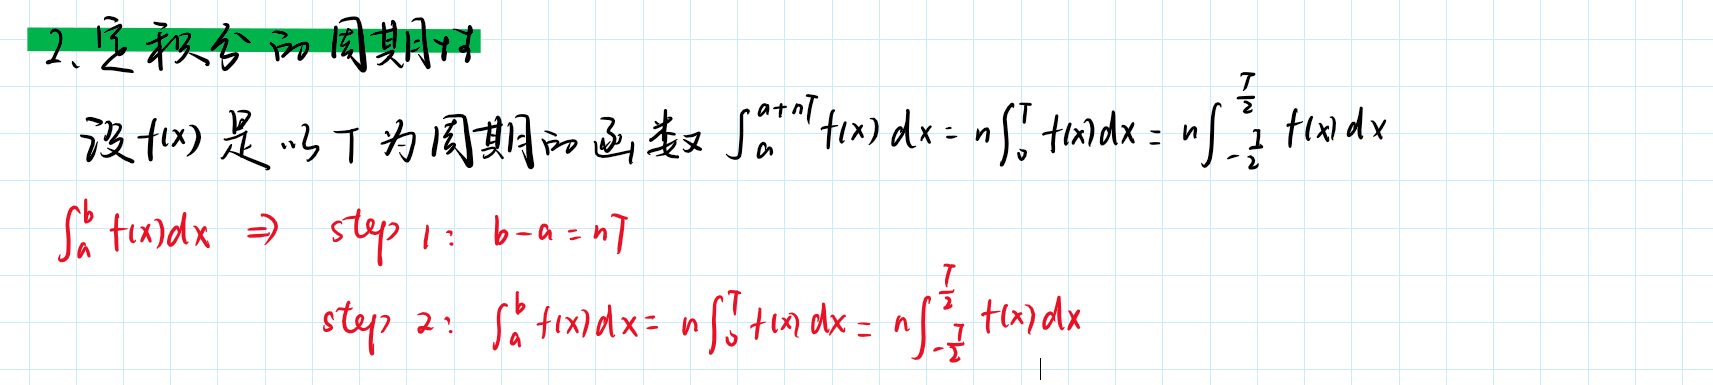 2、定积分的周期性
设f(x)是以T为周期的函数 ∫_a^{a+nT} f(x)dx = n∫_0^T f(x)dx = n∫_{-T/2}^{T/2} f(x)dx
∫_a^b f(x)dx ⇒ step 1: b-a=nT
step 2: ∫_a^b f(x)dx = n∫_0^T f(x)dx = n∫_{-T/2}^{T/2} f(x)dx